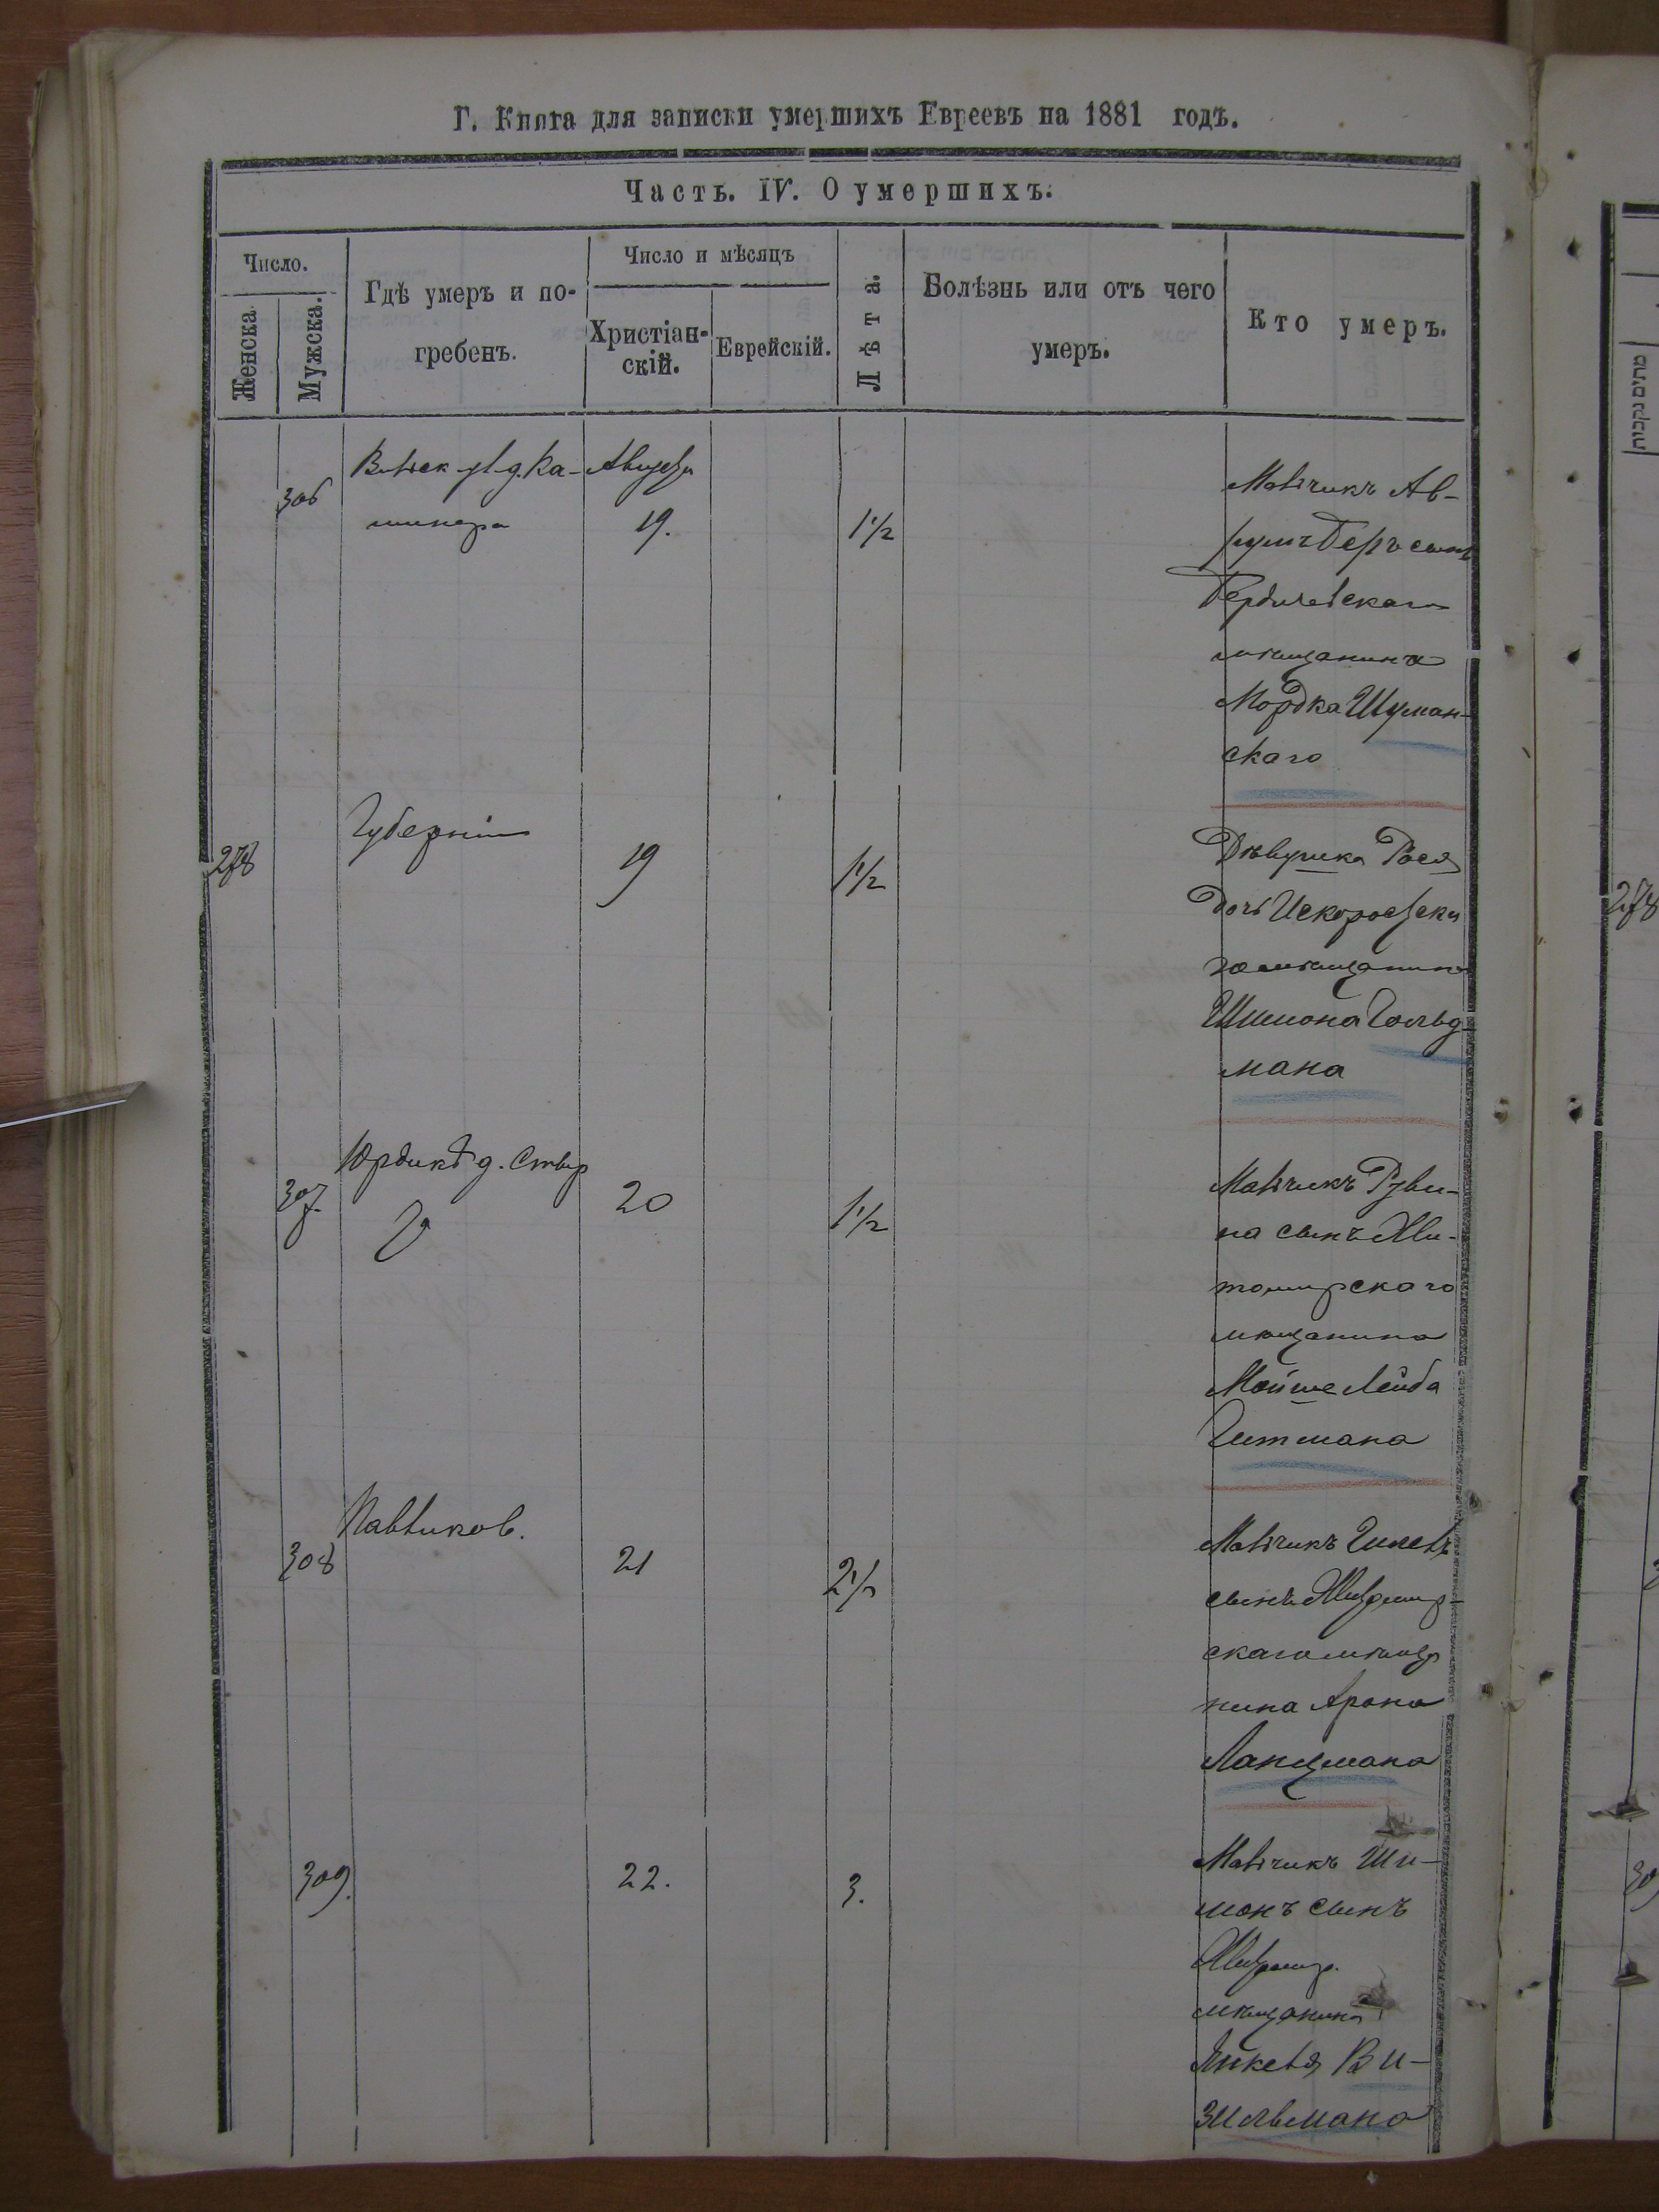 Г. Книга для записки умершихъ Евреевъ на 1881 годъ.
Часть. IV. О умершихъ.
Число.
Женска
Мужска.
Гдѣ умеръ и по-
гребенъ.
Число и мѣсяцъ
Христіан-
скій.
Еврейскій.
Лѣта.
Болѣзнь или отъ чего
умеръ.
Кто умеръ.
306
д. Ка-
Августа
19.
1 1/2
Мальчикъ Ав-
румъ Беръ сынъ
Бердичевскаго
мѣщанина
Мордка Шуман-
скаго
278
Губерніи
19
1 1/2
Дѣвушка Рося
дочь Искоростска
го мѣщанина
Шимона Гольд-
мана
307.
д.
20
1 1/2
Мальчикъ Руви-
на сынъ Жи-
томирскаго
мѣщанина
Мойше Лейба
Гитмана
308
Павликов.
21
2 1/2
Мальчикъ
сынъ Житомир-
скаго мѣща
нина Арона
Ланцмана
309.
22.
3.
Мальчикъ Ши-
монъ сынъ
Житомир.
мѣщанина
Янкеля Ви-
зильмана
278
309